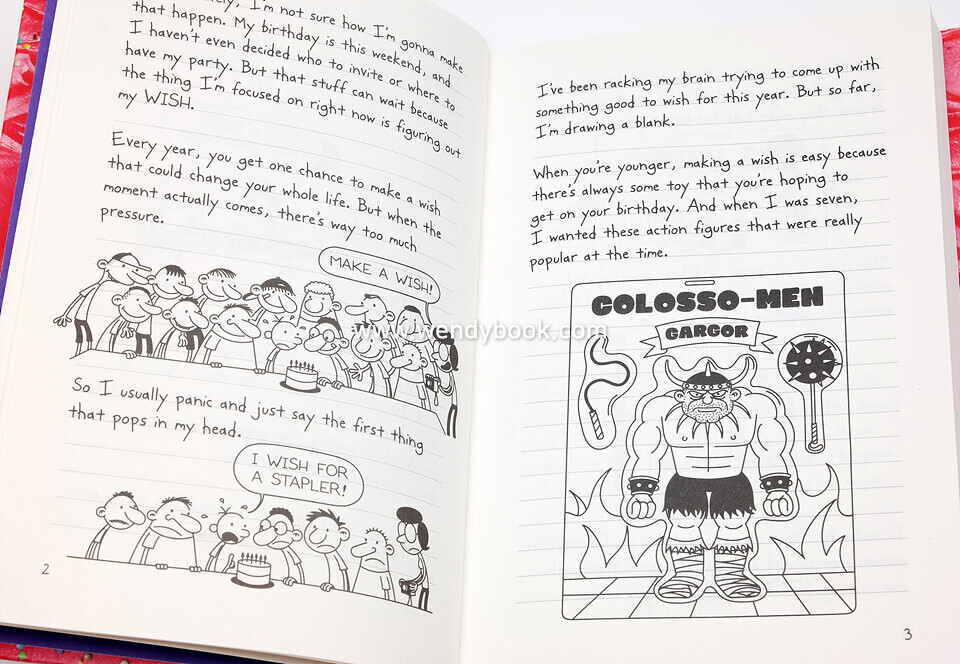 I'm not sure how I'm gonna make
that happen. My birthday is this weekend, and
I haven't even decided who to invite or where to
have my party. But that stuff can wait because
the thing I'm focused on right now is figuring out
my WISH.
Every year, you get one chance to make a wish
that could change your whole life. But when the
moment actually comes, there's way too much
pressure.
MAKE A WISH!
So I usually panic and just say the first thing
that pops in my head.
I WISH FOR
A STAPLER!
2
I've been racking my brain trying to come up with
something good to wish for this year. But so far,
I'm drawing a blank.
When you're younger, making a wish is easy because
there's always some toy that you're hoping to
get on your birthday. And when I was seven,
I wanted these action figures that were really
popular at the time.
COLOSSO-MEN
GARGOR
3
www.wendybook.com